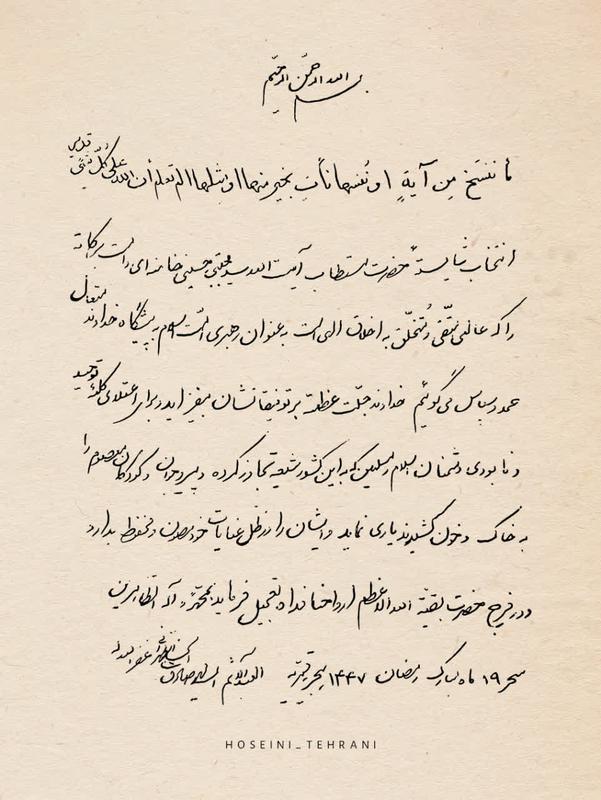 بسم الله الرحمن الرحیم
ما ننسخ من آیةٍ او نُنسها نأتِ بخیر منها او مثلها الم تعلم أن الله علی کلّ شیءٍ قدیر
انتخاب شایستهٔ حضرت مستطاب آیت الله سید مجتبی حسینی خامنه‌ای دامت برکاته
را که عالمی متّقی و مُتخلّق به اخلاق الهی است به عنوان رهبری امّت اسلام به پیشگاه خداوند متعال
حمد و سپاس می‌گوئیم خداوند جلّت عظمته بر توفیقاتشان بیفزاید و برای اعتلای کلمهٔ توحید
و نابودی دشمنان اسلام و مسلمین که به این کشور شیعه تجاوز کرده و پیر و جوان و کودکان معصوم را
به خاک و خون کشیدند یاری نماید و ایشان را در ظل عنایات خود مصون و محفوظ بدارد
و در فرج حضرت بقیّة الله الاعظم ارواحنا فداه تعجیل فرماید بمحمّد و آله الطاهرین
سحر ۱۹ ماه مبارک رمضان ۱۴۴۷ هجریه قمریه العبد الآثم السید محمد صادق الحسینی الطهرانی غفر الله له
HOSEINI_TEHRANI